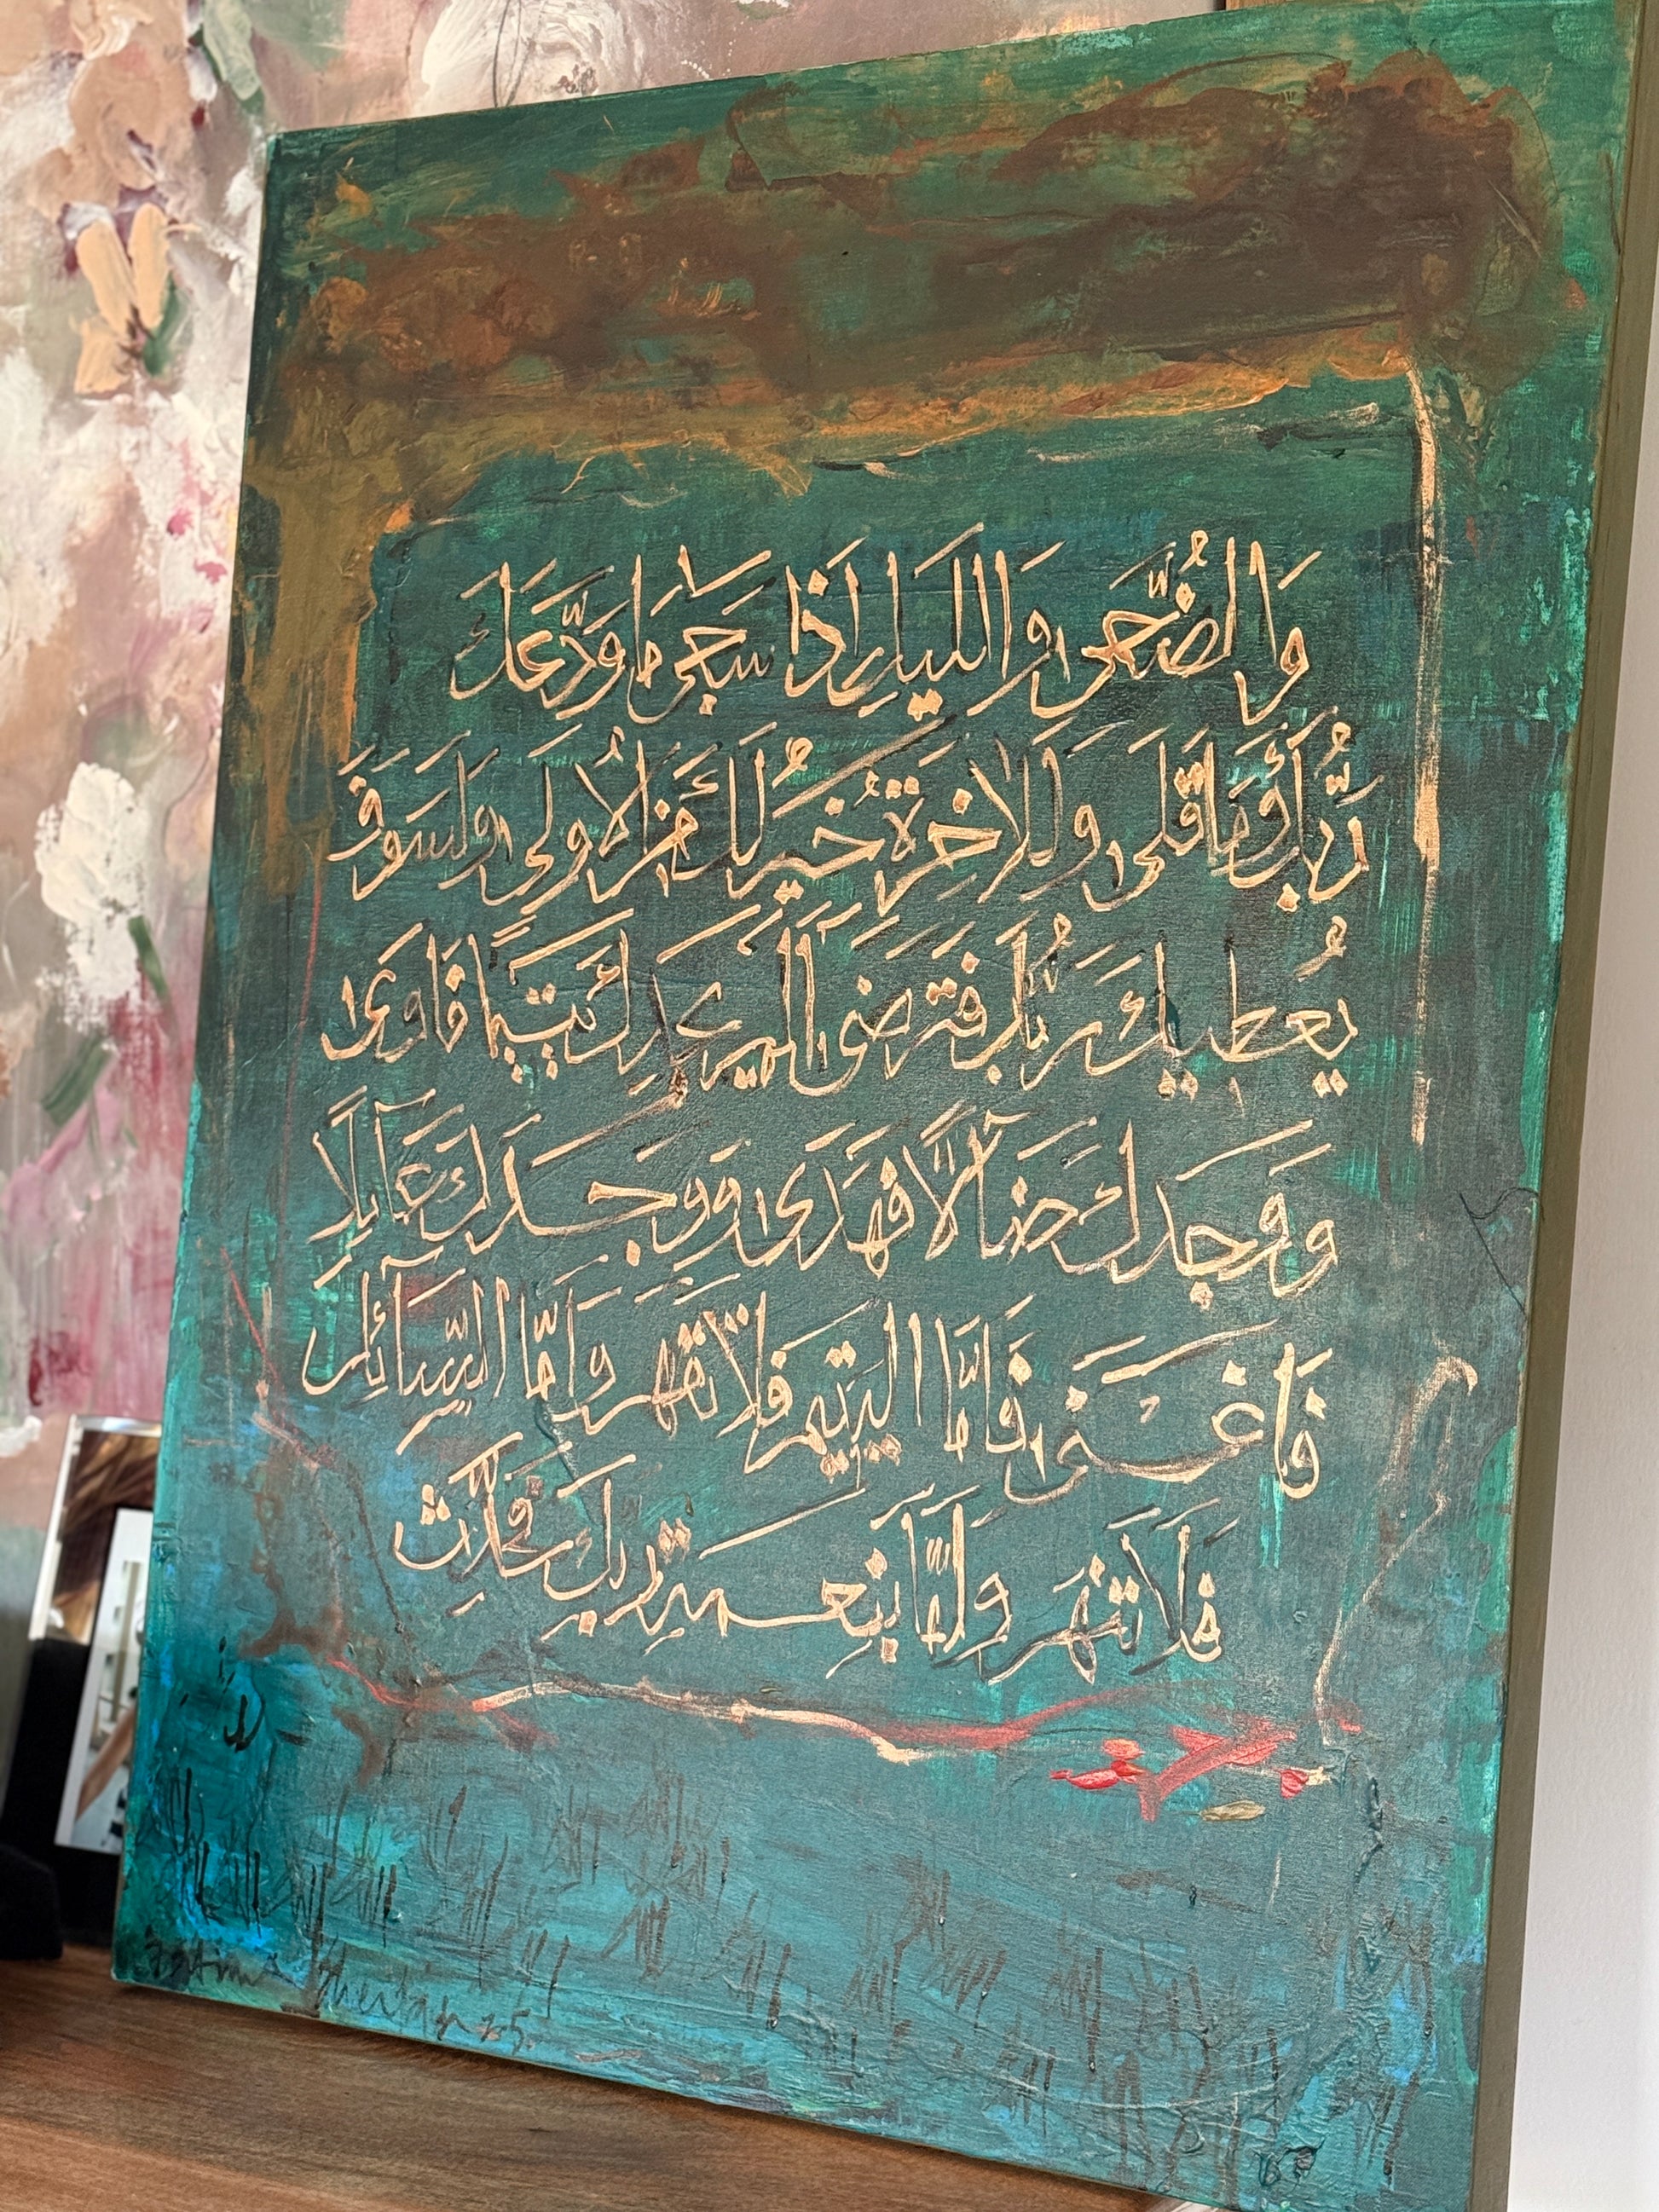 وَالضُّحَى وَاللَّيلِ إِذَا سَجَى مَا وَدَّعَكَ
رَبُّكَ وَمَا قَلَى وَلَلاخِرَةُ خَيرُ لَّكَ مِنَ الأُولَى وَلَسَوفَ
يُعطِيكَ رَبُّكَ فَتَرضَى أَلَم يَجِدكَ يَتِيمًا فَاوَى
وَوَجَدَكَ ضَآلًّا فَهَدَى وَوَجَدَكَ عَآئِلًا
فَأَغنَى فَأَمَّا اليَتِيمَ فَلَا تَقهَر وَأَمَّا السَّآئِلَ
فَلَا تَنهَر وَأَمَّا بِنِعمَةِ رَبِّكَ فَحَدِّث